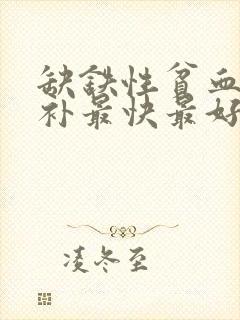 缺铁性贫血
补最快最好
凌冬至